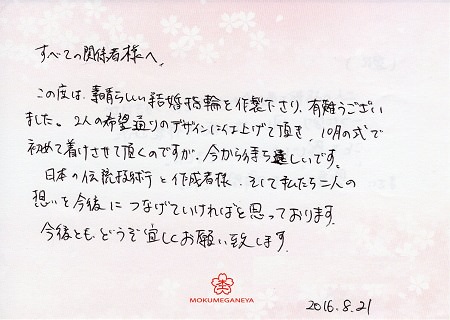 すべての関係者様へ、
この度は、素晴らしい結婚指輪を作製下さり、有難うござい
ました。2人の希望通りのデザインに仕上げて頂き、10月の式で
初めて着けさせて頂くのですが、今から待ち遠しいです。
日本の伝統技術と作成者様、そして私たち二人の
想いを今後につなげていければと思っております。
今後とも、どうぞ宜しくお願い致します。
MOKUMEGANEYA
2016.8.21